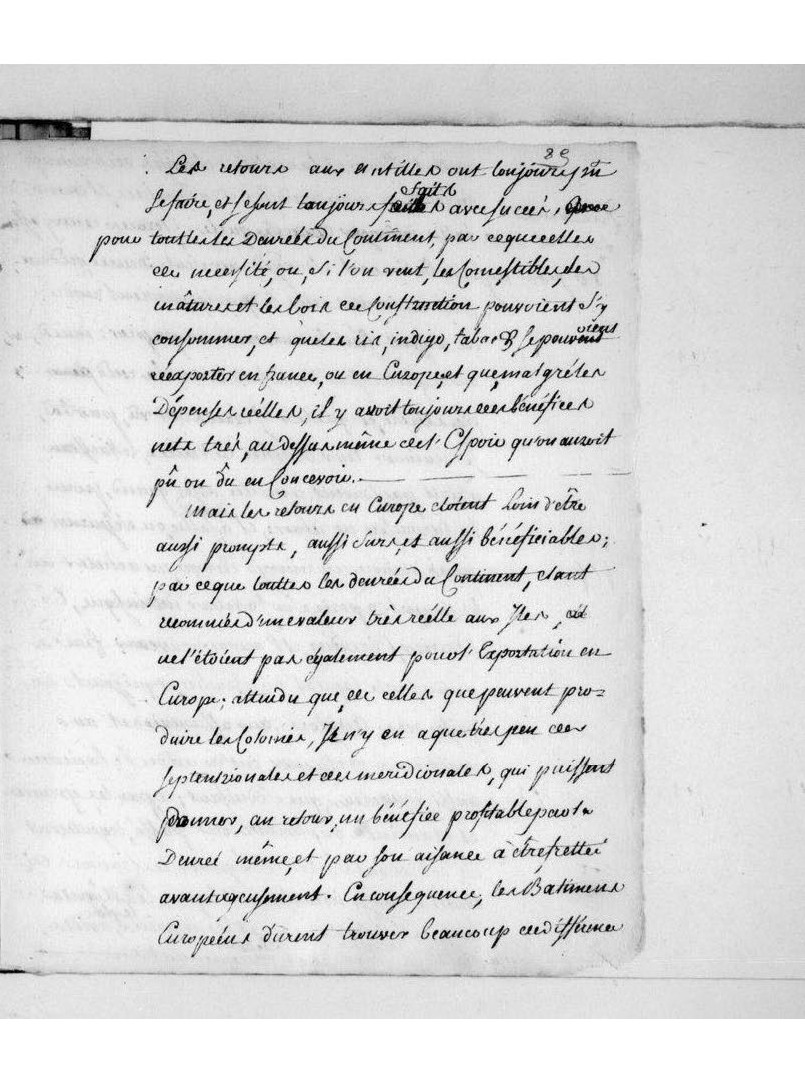 89
Les retours aux Antilles ont toujours pû
se faire, et se sont toujours faits avec succès,
pour touttes les Denrées du Continent, par ce que celles
de necessité, ou, si l'on veut, les Comestibles, les
mâtures et les bois de Construction pouvoient s'y
consommer, et que les ris, indigo, tabac & se pouvoient
réexporter en france, ou en Europe, et que, malgré les
Dépenses réelles, il y avoit toujours des bénéfices
nets très, au dessus même de l'Espoir qu'on auroit
pû ou dû en Concevoir.
Mais les retours en Europe étoient loin d'être
aussi prompts, aussi surs, et aussi bénéficiables;
par ce que touttes les denrées du Continent, étant
reconnües d'une valeur très réelle aux Isles,
ne l'étoient pas également pour l'Exportation en
Europe; attendu que, de celles que peuvent pro=
duire les Colonies, Il n'y en a que très peu des
septentrionales et des meridionales, qui puissent
donner, au retour, un bénéfice profitable par la
Denrée même, et par son aisance à être frettée
avantageusement. En consequence, les Batimens
Européens durent trouver beaucoup de différence